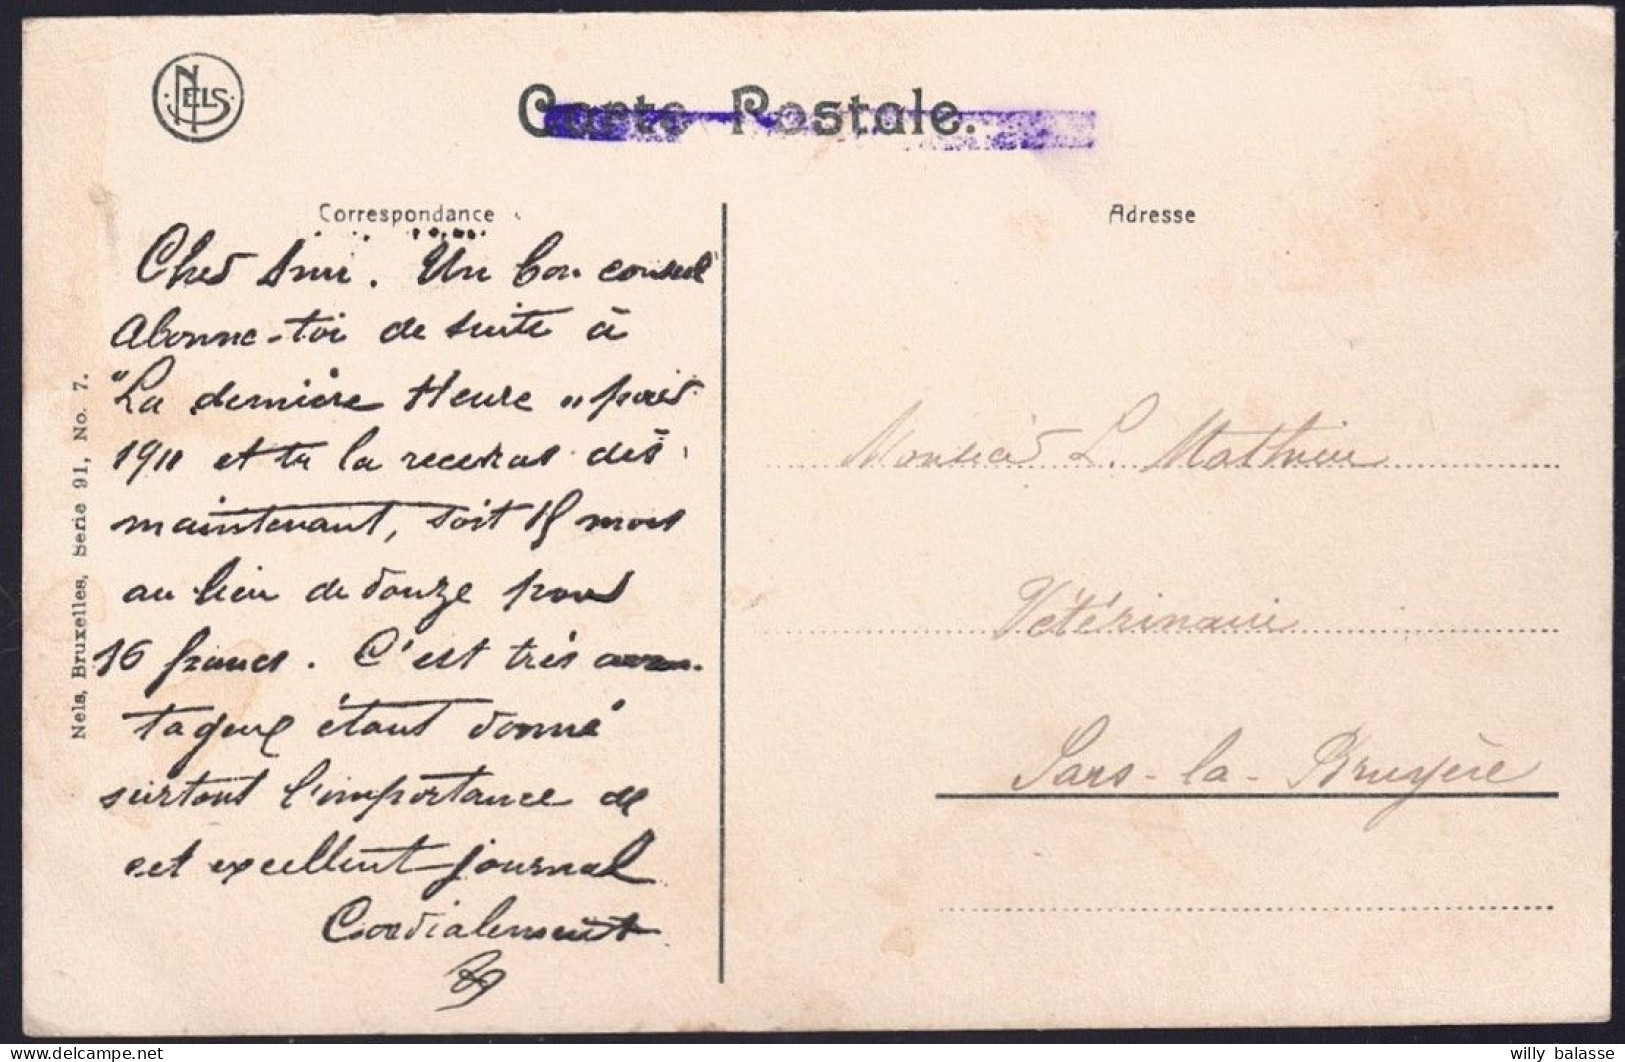 NELS
Carte Postale.
Correspondance
Adresse
Cher Ami. Un bon conseil
Abonne-toi de suite à
"La dernière Heure" pour
1911 et tu la recevras dès
maintenant, soit 15 mois
au lieu de douze pour
16 francs. C'est très avan-
tageux étant donné
surtout l'importance de
cet excellent journal
Cordialement
Monsieur L. Mathieu
Vétérinaire
Sars-la-Bruyère
Nels, Bruxelles, Serie 91, No. 7.
willy balasse